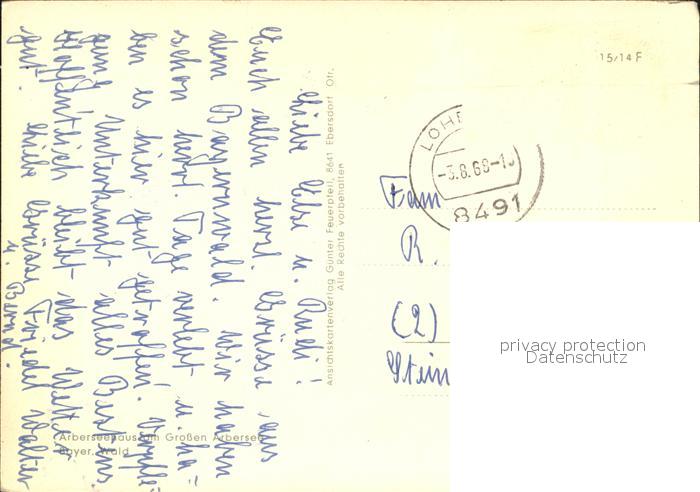 Liebe Else u. Rudi!
Euch allen herzl. Grüsse aus
dem Bayernwald. Wir haben
schon herrl. Tage verlebt u. ha-
ben es hier gut getroffen. Verpfle-
gung Unterkunft alles Bestens
Hoffentlich bleibt das Wetter
gut. Liebe Grüsse Friedel Walter
u. Bernd.
Arberseehaus am Großen Arbersee
Bayer. Wald
Ansichtskartenverlag Günter Feuerpfeil, 8641 Ebersdorf Ofr.
Alle Rechte vorbehalten
15/14 F
LOH
-3.8.68-1
8491
Fam
R.
(2)
Stein
privacy protection
Datenschutz